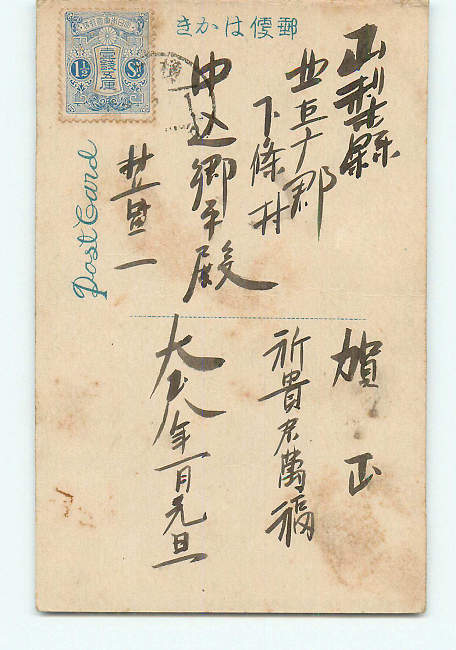 郵便はかき
大日本帝國郵便
壹錢五厘
1½ Sn
Post Card
山梨縣
北巨广郡
下條村
中込郷平殿
賀正
祈貴君萬福
大正八年一月元旦